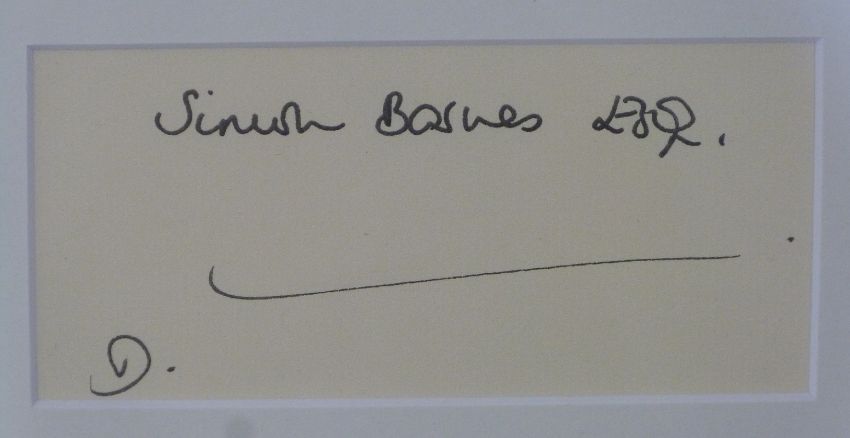 Simon Barnes ESQ.
D.